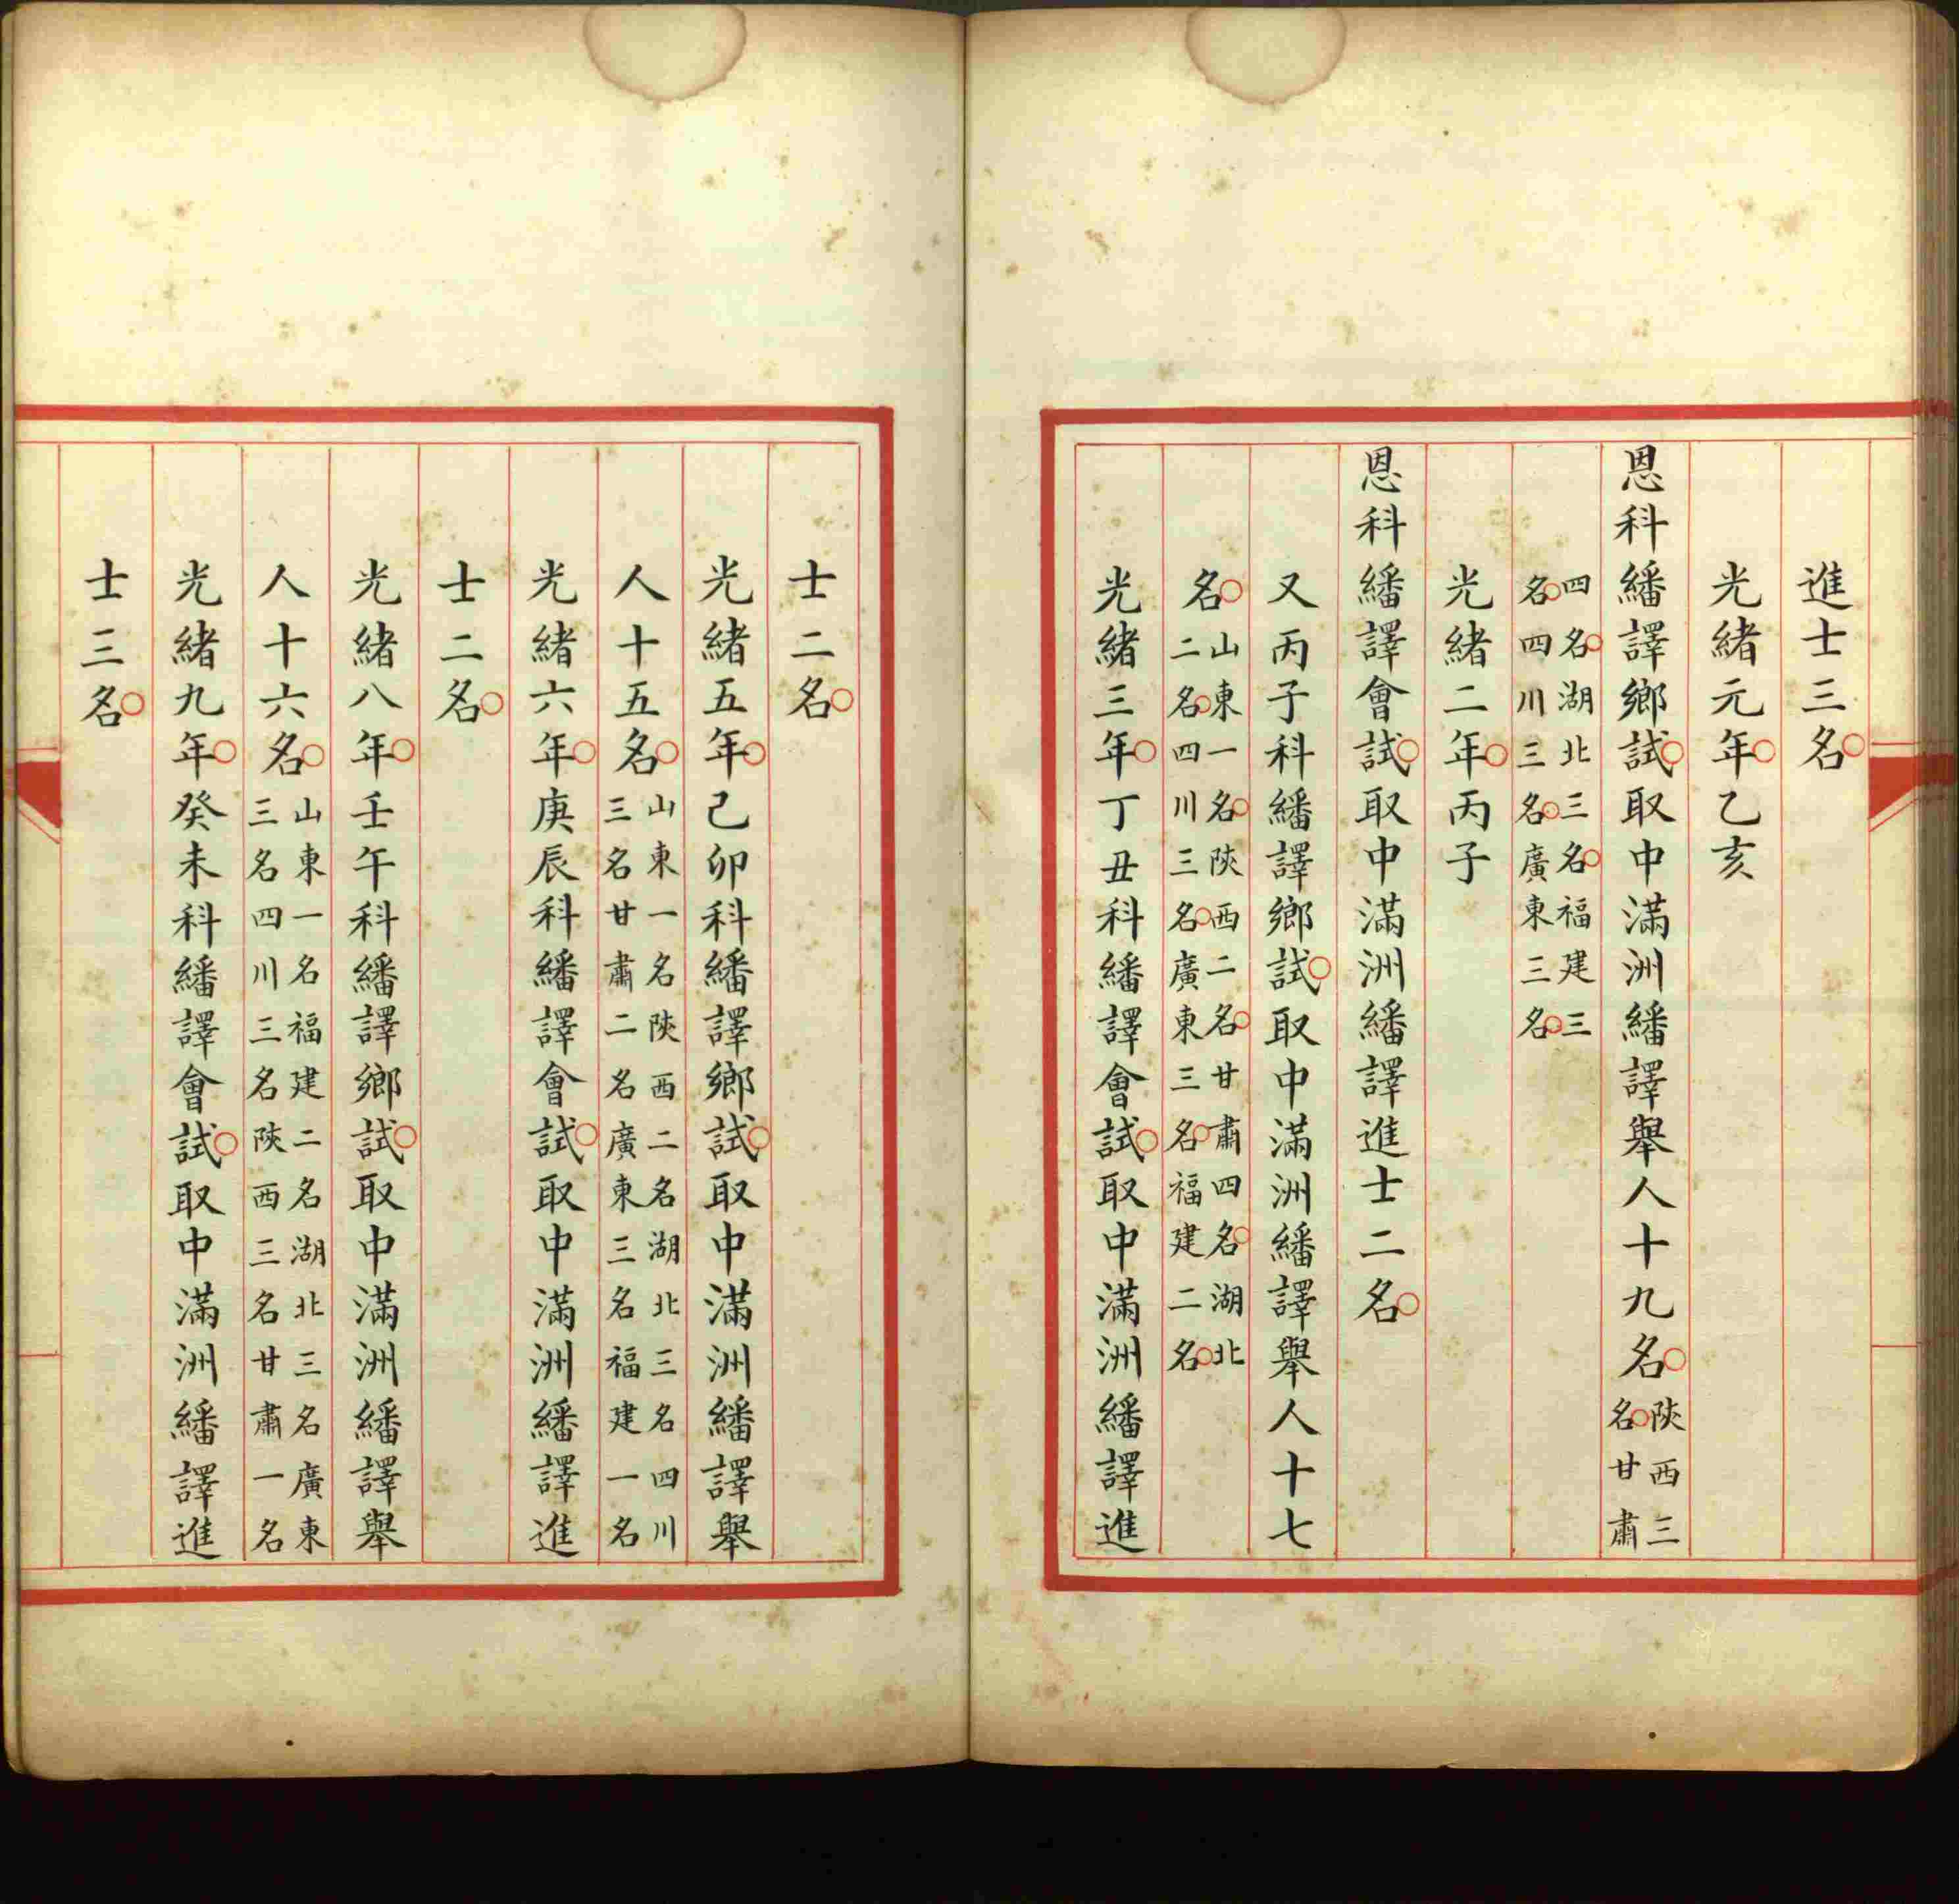 進士三名
光緒元年乙亥
恩科繙譯鄉試取中滿洲繙譯舉人十九名陝西三名甘肅
四名湖北三名福建三名四川三名廣東三名
光緒二年丙子
恩科繙譯會試取中滿洲繙譯進士二名
又丙子科繙譯鄉試取中滿洲繙譯舉人十七
名山東一名陝西二名甘肅四名湖北二名四川三名廣東三名福建二名
光緒三年丁丑科繙譯會試取中滿洲繙譯進
士二名
光緒五年己卯科繙譯鄉試取中滿洲繙譯舉
人十五名山東一名陝西二名湖北三名四川三名甘肅二名廣東三名福建一名
光緒六年庚辰科繙譯會試取中滿洲繙譯進
士二名
光緒八年壬午科繙譯鄉試取中滿洲繙譯舉
人十六名山東一名福建二名湖北三名廣東三名四川三名陝西三名甘肅一名
光緒九年癸未科繙譯會試取中滿洲繙譯進
士三名